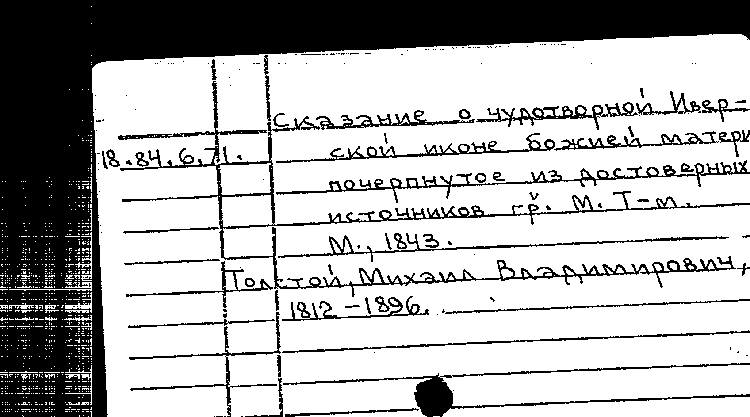 Сказание о чудотворной Ивер-
18.84.6.71. ской иконе божией матери
почерпнутое из достоверных
источников гр. М. Т-м.
М., 1843.
Толстой, Михаил Владимирович,
1812-1896.